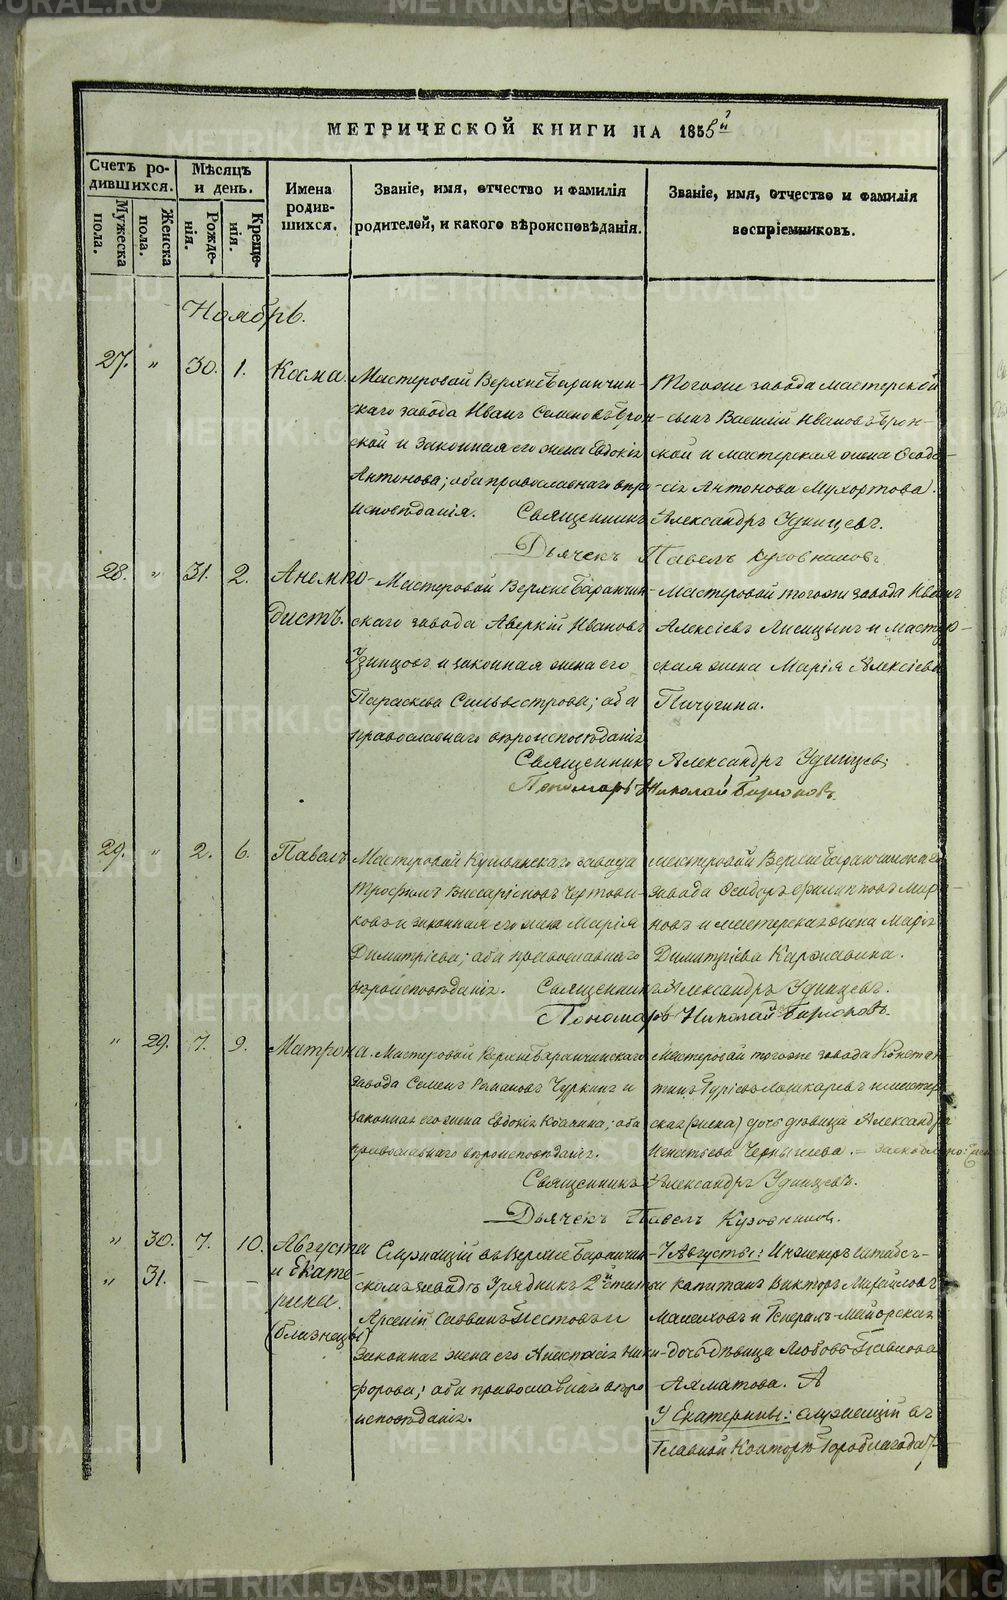 METRIKI.GASO-URAL.RU
МЕТРИЧЕСКОЙ КНИГИ НА 1855й
Счетъ ро-
дившихся.
Мѣсяцъ
и день.
Мужеска
пола.
Женска
пола.
Рожде-
нія.
Креще-
нія.
Имена
родив-
шихся.
Званіе, имя, отчество и фамилія
родителей, и какого вѣроисповѣданія.
Званіе, имя, отчество и фамилія
воспріемниковъ.
Ноябрь.
27. " 30. 1. Косма.
Мастеровой Верхнебаранчин-
скаго завода Иванъ Семеновъ
и законная его жена Евдокія
Антонова; оба православнаго вѣро-
исповѣданія.
Тогоже завода мастерской
сынъ Василій Ивановъ
и мастерская жена Ѳеодо-
сія Антонова Мухортова.
Священникъ Александръ Удинцевъ.
Дьячекъ Павелъ
28. " 31. 2. Анемпо-
дистъ.
Мастеровой Верхнебаранчин-
скаго завода Аверкій Ивановъ
и законная жена его
Параскева Сильвестрова; оба
православнаго вѣроисповѣданія
Мастеровой тогоже завода Иванъ
Алексіевъ Лисицынъ и мастер-
ская жена Марія Алексіева
Пичугина.
Священникъ Александръ Удинцевъ
Пономарь Николай
29. " 2. 6. Павелъ
Мастеровой Кушвинскаго завода
Трофимъ Висаріоновъ
и законная его жена Марія
Димитріева; оба православнаго
вѣроисповѣданія.
мастеровой Верхнебаранчинскаго
завода Ѳеодоръ Филипповъ Миро-
новъ и мастерская жена Марія
Димитріева Каржавина.
Священникъ Александръ Удинцевъ.
Пономарь Николай
" 29. 7. 9. Матрона.
Мастеровой Верхнебаранчинскаго
завода Семенъ Романовъ Чуркинъ и
законная его жена Евдокія Козмина; оба
православнаго вѣроисповѣданія.
мастеровой тогоже завода Констан-
тинъ Гуріевъ Лошкаревъ и мастер-
ская (жена) дочь дѣвица Александра
Игнатіева Чернышева.
Священникъ Александръ Удинцевъ.
Дьячекъ Павелъ
" 30. 7. 10. Августа
" 31. – – и Екате-
рина.
(близнецы)
Служащій въ Верхнебаранчин-
скомъ заводѣ Урядникъ 2й статьи
Арсеній Савинъ Пестовъ и
законная жена его Анастасія Ники-
форова; оба православнаго вѣро-
исповѣданія.
У Августы: Инженеръ штабсъ-
капитанъ Викторъ Михайловъ
и Генералъ-Маіорская
дочь дѣвица Любовь Павлова
Ахматова. А
У Екатерины: служащій въ
Главной Конторѣ Гороблагодат-